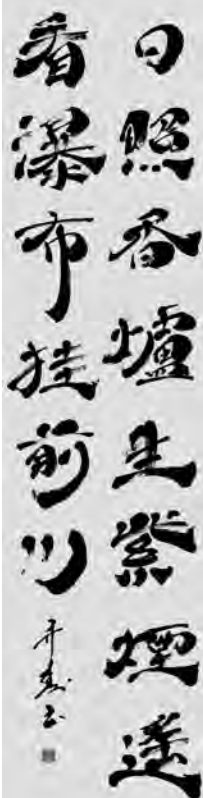 日照香爐生紫煙遙
看瀑布挂前川